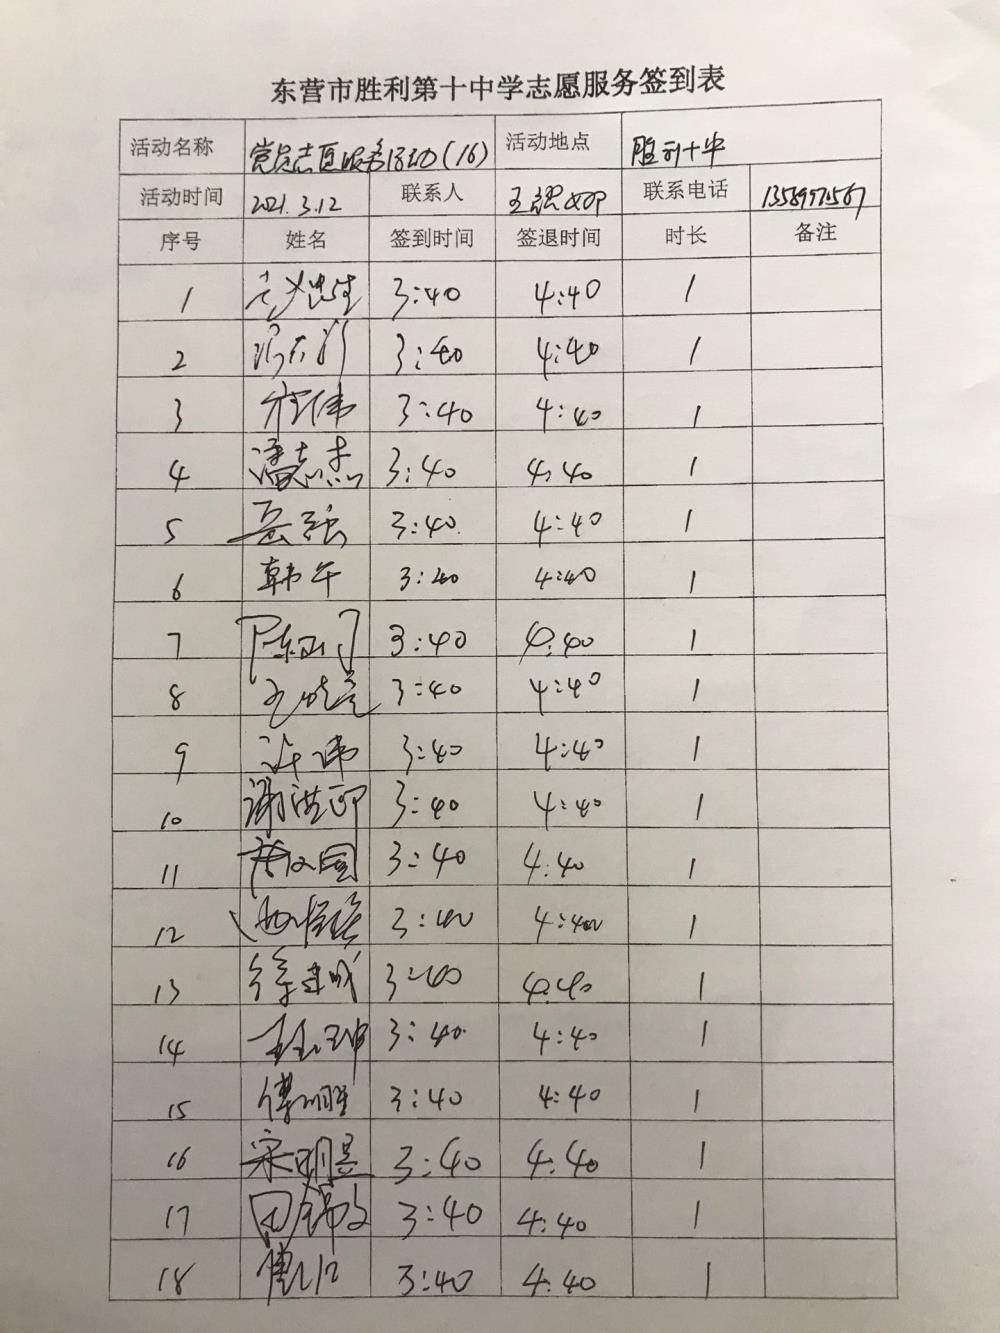 东营市胜利第十中学志愿服务签到表
活动名称 党员志愿服务活动(16) 活动地点 胜利十中
活动时间 2021.3.12 联系人 联系电话
序号 姓名 签到时间 签退时间 时长 备注
1 3:40 4:40 1
2 3:40 4:40 1
3 3:40 4:40 1
4 潘志杰 3:40 4:40 1
5 岳强 3:40 4:40 1
6 韩午 3:40 4:40 1
7 3:40 4:40 1
8 3:40 4:40 1
9 许伟 3:40 4:40 1
10 3:40 4:40 1
11 3:40 4:40 1
12 3:40 4:40 1
13 徐建成 3:40 4:40 1
14 3:40 4:40 1
15 傅明胜 3:40 4:40 1
16 宋明昱 3:40 4:40 1
17 田锦文 3:40 4:40 1
18 3:40 4:40 1